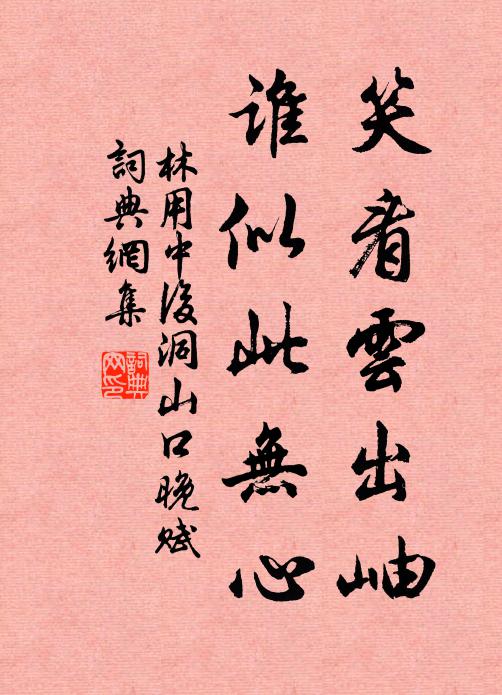 笑看雲出岫
誰似此無心
林用中後洞山口晚賦
詞典網集
詞典網印